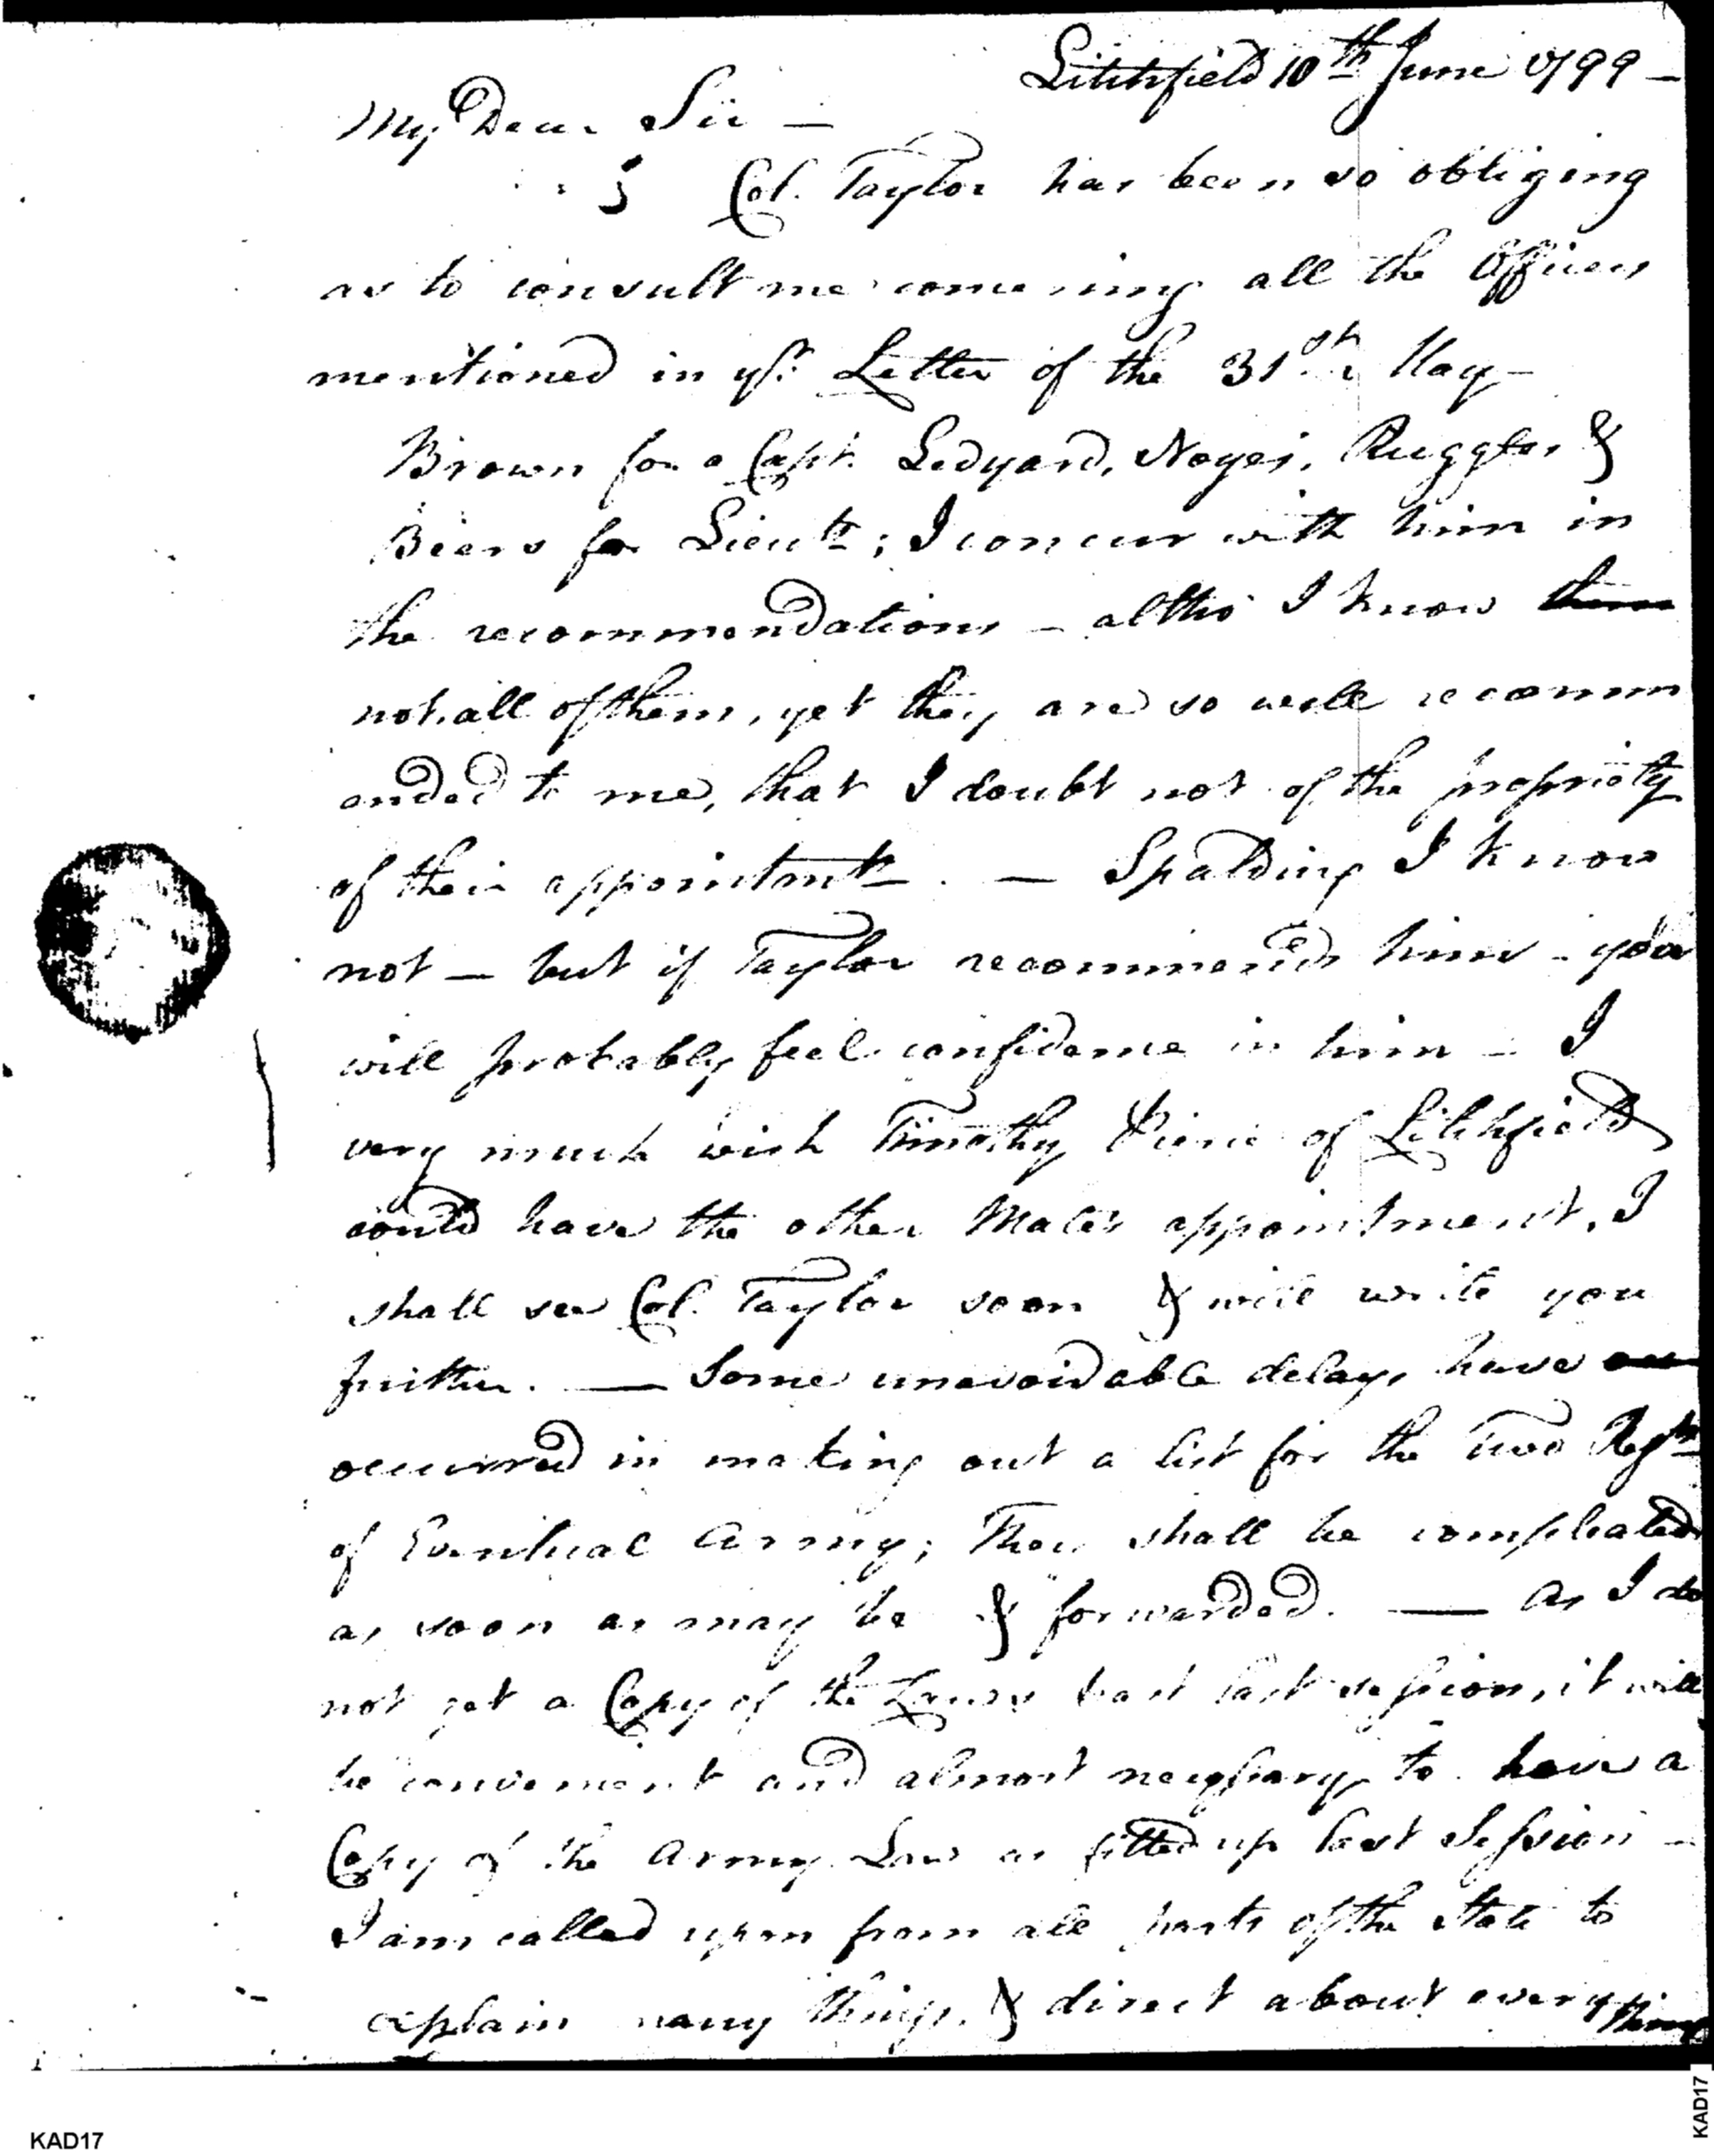 Litchfield 10th June 1799 —
My Dear Sir —
Col. Taylor has been so obliging
as to consult me concerning all the Officers
mentioned in yr. Letter of the 31st May —
Brown for a Capt. Ledyard, Noyes, Ruggles &
Beers for Lieuts; I concur with him in
the recommendations — altho' I know them
not all of them, yet they are so well recomm
ended to me, that I doubt not of the propriety
of their appointmts. — Spalding I know
not — but if Taylor recommends him — you
will probably feel confidence in him — I
very much wish Timothy Pierce of Litchfield
could have the other Mates appointment, I
shall see Col. Taylor soon & will write you
further. — Some unavoidable delays have
occurred in making out a list for the Two Regts
of Eventual Army; They shall be compleated
as soon as may be & forwarded. — As I do
not get a Copy of the Laws last session, it will
be convenient and almost necessary to have a
Copy of the Army Law as fitted up last Session —
I am called upon from all parts of the State to
explain many things, & direct about every thing
KAD17
KAD17